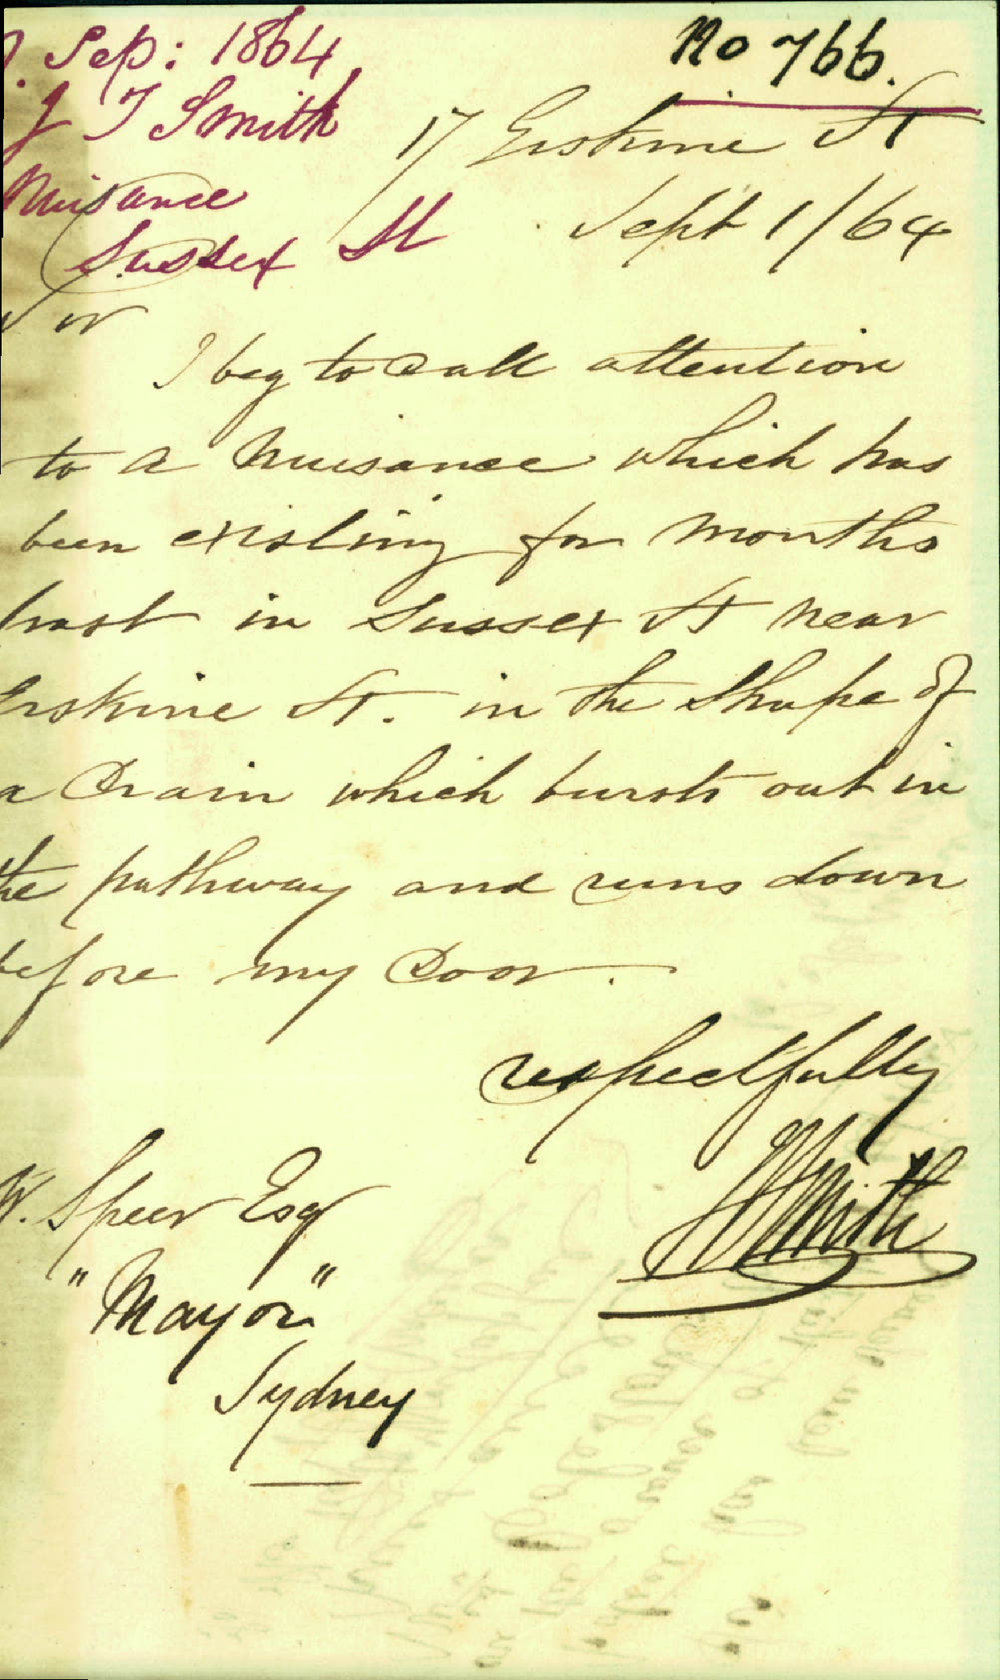 Sep: 1864
No 766.
J T Smith
17 Erskine St
Nuisance
Sussex St
Sept 1/64
Sir
I beg to Call attention
to a Nuisance which has
been existing for Months
past in Sussex St near
Erskine St. in the Shape of
a Drain which bursts out in
the pathway and runs down
before my Door.
respectfully
Smith
W. Speer Esqr
"Mayor"
Sydney